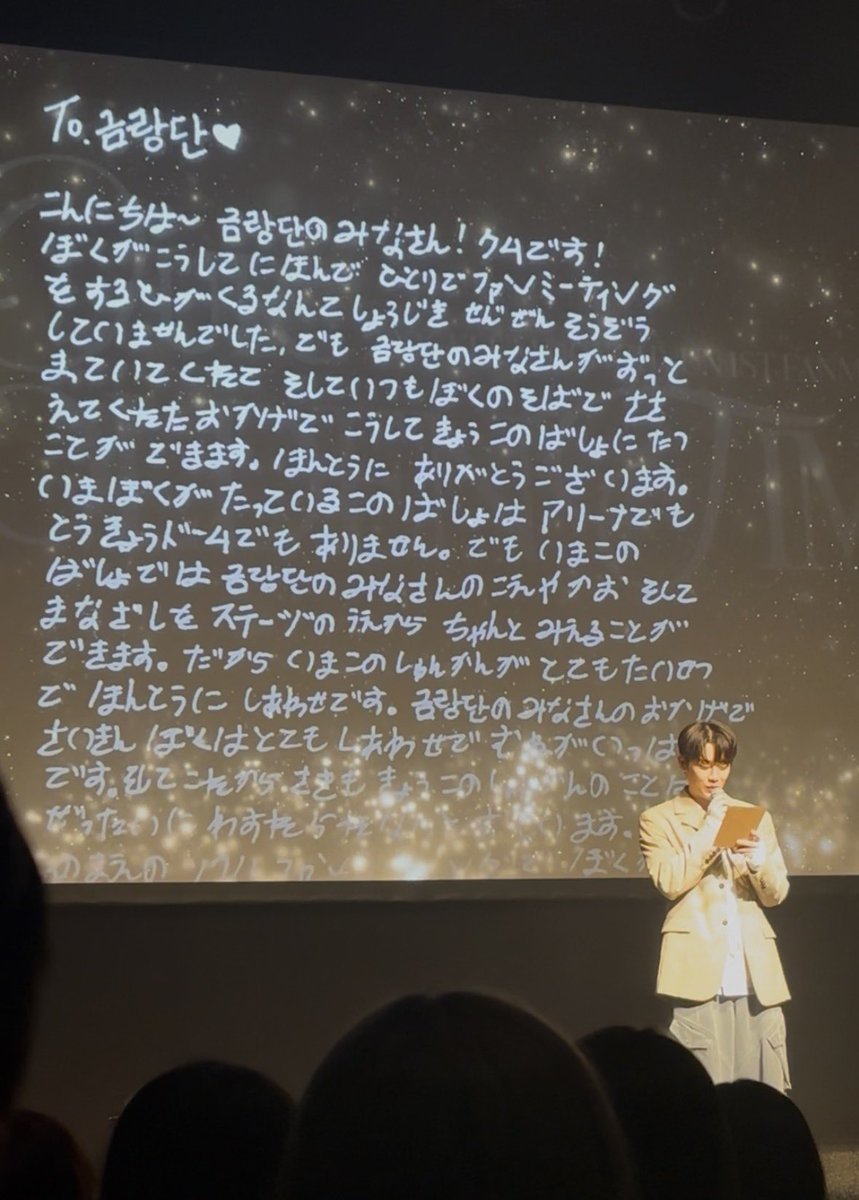 To. 금랑단♥
こんにちは～ 금랑단のみなさん！クムです！
ぼくが こうして にほんで ひとりで ファンミーティング
をするひが くるなんて しょうじき せんぜん そうぞう
していませんでした。でも 금랑단のみなさんが ずっと
まっていて くれて そして いつも ぼくの そばで ささ
えて くれた おかげで こうして きょう このばしょに たつ
ことが できます。ほんとうに ありがとうございます。
いま ぼくが たっている このばしょは アリーナでも
とうきょうドームでも ありません。でも いま この
ばしょでは 금랑단のみなさんの こえや かお そして
まなざしを ステージの うえから ちゃんと みえることが
できます。だから いま このしゅんかんが とても たいせつ
で ほんとうに しあわせです。금랑단のみなさんの おかげで
さいきん ぼくは とても しあわせで むねが いっぱ
です。そして これから さきも きょう この の ことは
ぜったいに わすれ ます。
まえの ぼくが